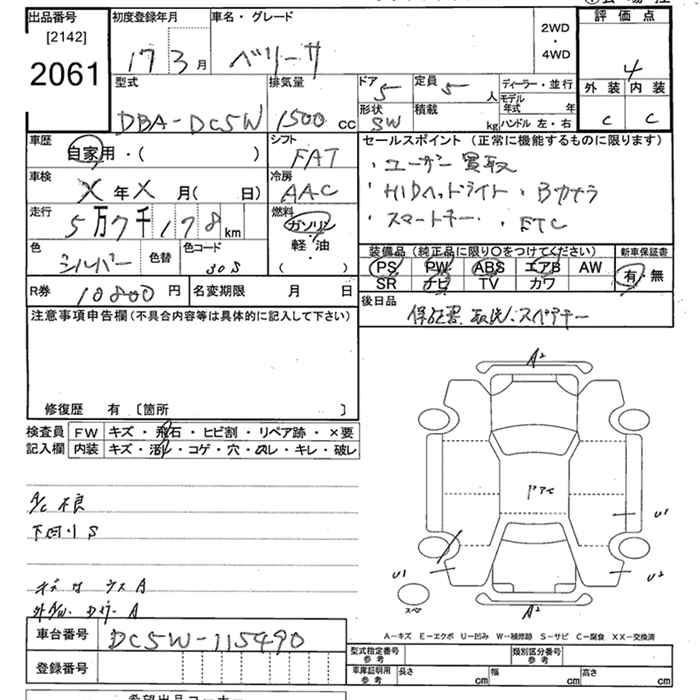 出品番号 初度登録年月 車名・グレード 2WD・4WD 評価点
[2142]
2061 17 3月 ベリーサ 4
型式 排気量 ドア 5 定員 5人 ディーラー・並行 外装 内装
DBA-DC5W 1500 cc 形状 SW 積載 kg モデル年式 年 ハンドル 左・右 C C
車歴 自家用・( ) シフト FAT セールスポイント (正常に機能するものに限ります)
車検 X年X月( 日) 冷房 AAC ・ユーザー買取
・HIDヘッドライト・Bカメラ
走行 5万7千178km 燃料 ガソリン・軽・油 ( ) ・スマートキー・ETC
色 シルバー 色替 色コード 30S 装備品 (純正品に限り〇をつけてください) 新車保証書
PS PW ABS エアB AW 有・無
SR ナビ TV カワ
R券 10800円 名変期限 月 日 後日品
保証書、取説、スペアキー
注意事項申告欄(不具合内容等は具体的に記入して下さい)
A2
修復歴 有 〔箇所 〕
検査員 FW キズ・飛石・ヒビ割・リペア跡・×要
記入欄 内装 キズ・汚レ・コゲ・穴・スレ・キレ・破レ
A/C不良
下回りS
U1
U1 U2
スペア
A2
A-キズ E-エクボ U-凹み W-補修跡 S-サビ C-腐食 XX-交換済
車台番号 DC5W-115490
型式指定番号 参考 類別区分番号 参考
登録番号 車庫証明用 参考 長さ cm 幅 cm 高さ cm
希望出品コーナー